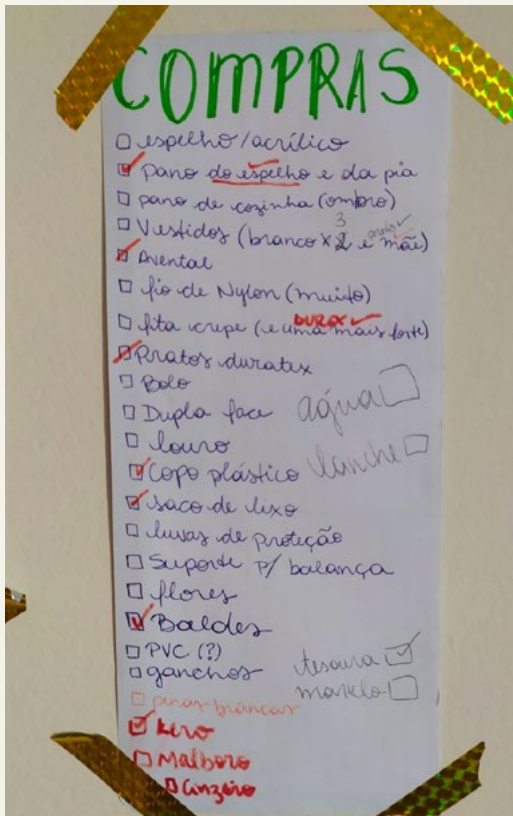 COMPRAS
espelho/acrílico
pano do espelho e da pia
pano de cozinha (ombro)
3
Vestidos (branco x 2 e mãe)
Avental
fio de Nylon (muito)
DUREX
fita crepe (e uma mais forte)
Pratos duratex
Bolo
Dupla face
água
louro
lanche
Copo plástico
saco de lixo
luvas de proteção
Suporte p/ balança
flores
Baldes
PVC (?)
tesoura
ganchos
martelo
brancas
Malboro
Cinzeiro